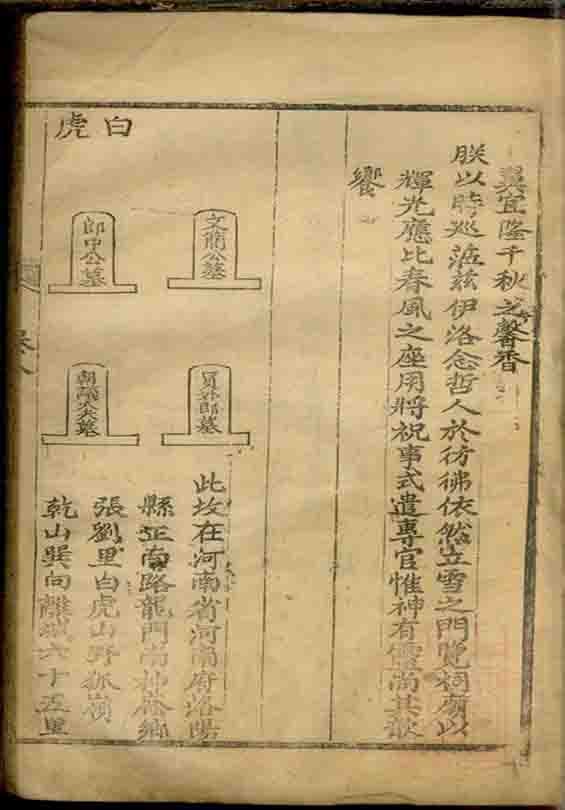 巽宜隆千秋之馨香
朕以時巡蒞茲伊洛念哲人於彷彿依然立雪之門覽祠廟以
輝光應比春風之座用將祝事式遣專官惟神有靈尚其歆
饗
白虎
文簡公墓
郎中公墓
員外郎墓
朝議大夫墓
此坟在河南省河南府洛陽
縣正南路龍門南神蔭鄉
張劉里白虎山野狐嶺
乾山巽向離城六十五里